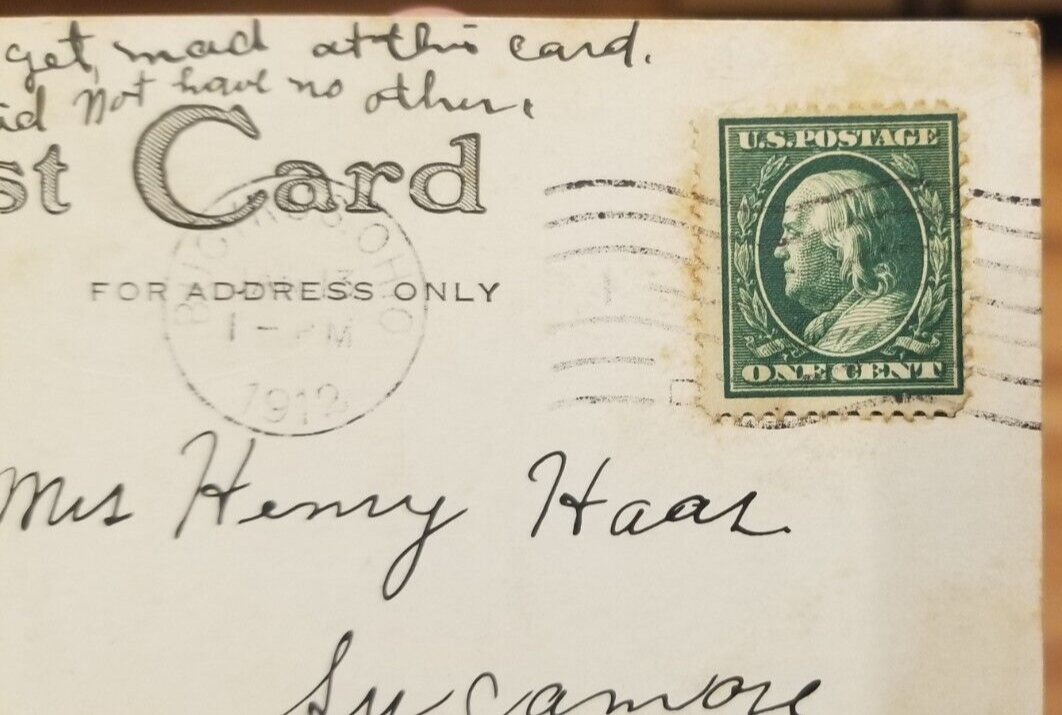 get mad at this card.
did not have no other.
Post Card
U.S. POSTAGE
FOR ADDRESS ONLY
OHIO
13
1 - PM
1912
ONE CENT
Mrs Henry Haas
Sycamore